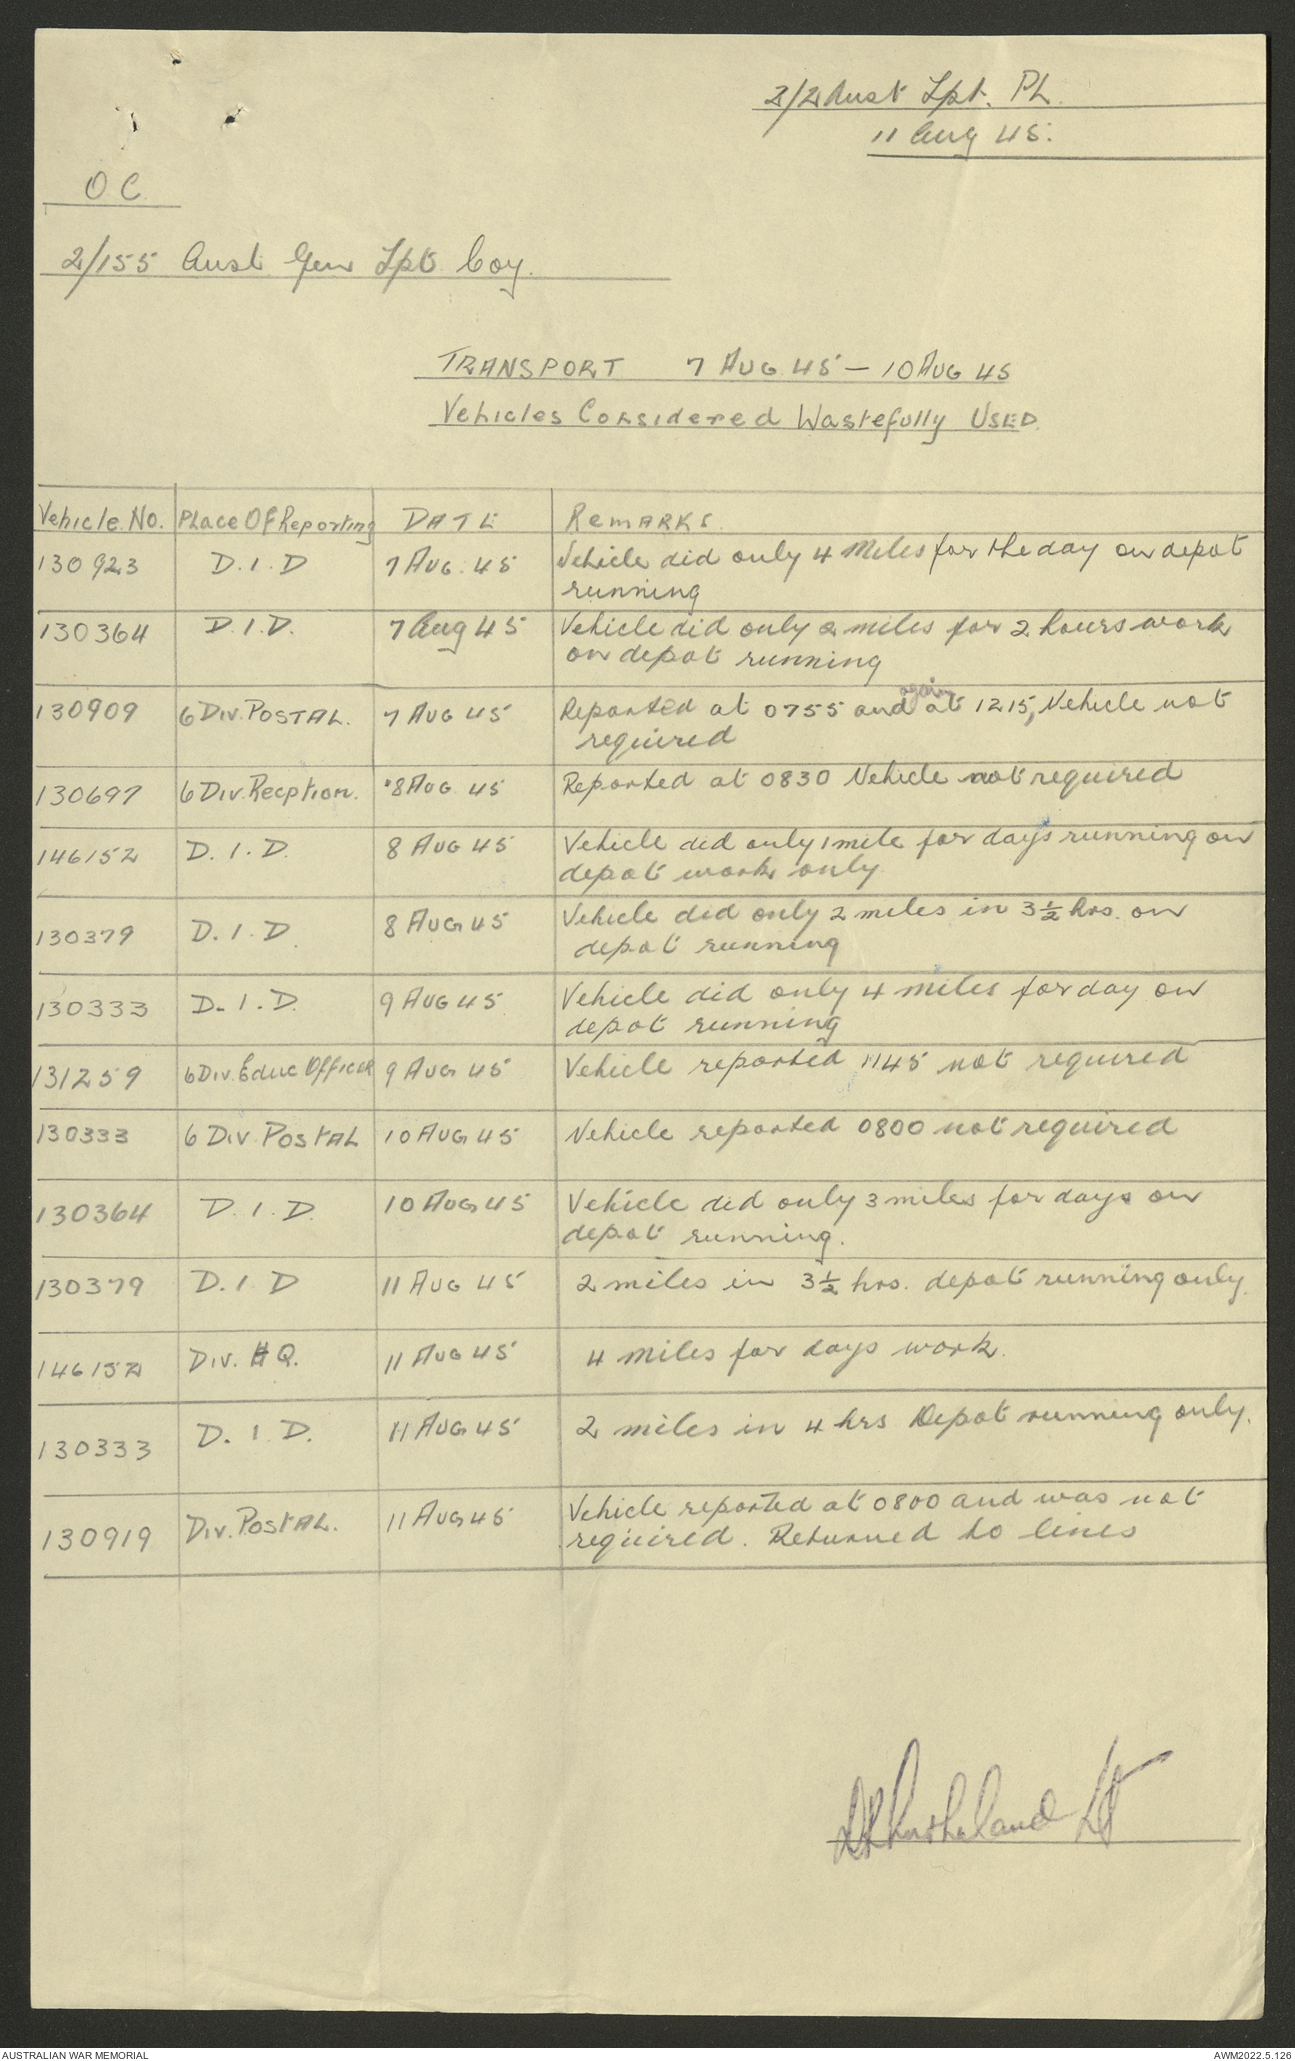 2/2 Aust Tpt. Pl.
11 Aug 45.
O.C.
2/155 Aust Gen Tpt Coy.
TRANSPORT 7 AUG 45 – 10 AUG 45
Vehicles Considered Wastefully USED.
Vehicle No. Place Of Reporting DATE Remarks.
130923 D.I.D 7 Aug. 45 Vehicle did only 4 Miles for the day on depot
running
130364 D.I.D. 7 Aug 45 Vehicle did only 2 miles for 2 hours work
on depot running
again
130909 6 Div. Postal. 7 Aug 45 Reported at 0755 and at 1215, Vehicle not
required
130697 6 Div. Recption. 8 Aug 45 Reported at 0830 Vehicle not required
146152 D.I.D. 8 Aug 45 Vehicle did only 1 mile for day's running on
depot work only
130379 D.I.D. 8 Aug 45 Vehicle did only 2 miles in 3½ hrs. on
depot running
130333 D.I.D. 9 Aug 45 Vehicle did only 4 miles for day on
depot running
131259 6 Div. Educ Officer 9 Aug 45 Vehicle reported 1145 not required
130333 6 Div. Postal 10 Aug 45 Vehicle reported 0800 not required
130364 D.I.D. 10 Aug 45 Vehicle did only 3 miles for days on
depot running.
130379 D.I.D 11 Aug 45 2 miles in 3½ hrs. depot running only.
146152 Div. HQ. 11 Aug 45 4 miles for days work.
130333 D.I.D. 11 Aug 45 2 miles in 4 hrs Depot running only.
130919 Div. Postal. 11 Aug 45 Vehicle reported at 0800 and was not
required. Returned to lines
Lt
AUSTRALIAN WAR MEMORIAL AWM2022.5.126